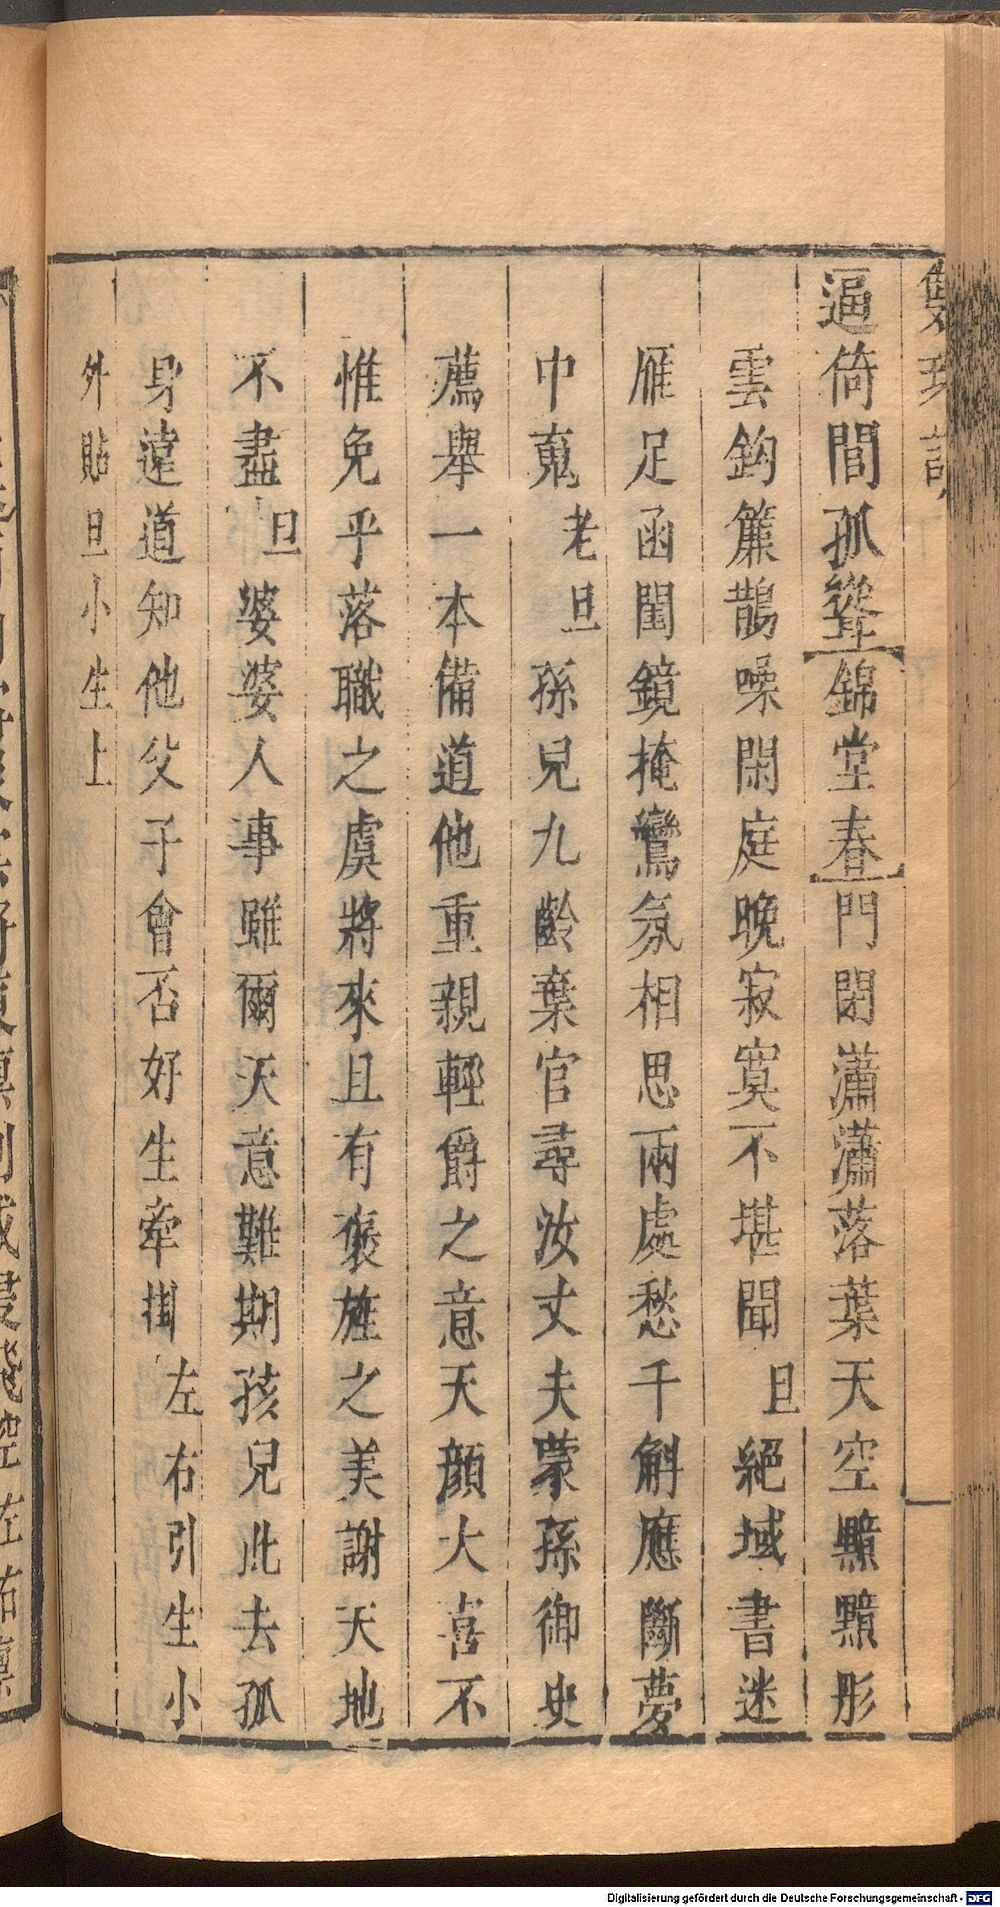 雙珠記
逼倚閭孤【錦堂春】門閉瀟瀟落葉天空黯黯彤
雲鈎簾鵲噪閑庭晚寂寞不堪聞旦絕域書迷
雁足函閨鏡掩鸞氛相思兩處愁千斛應斷夢
中蒐老旦孫兒九齡棄官尋汝丈夫蒙孫御史
薦舉一本備道他重親輕爵之意天顏大喜不
惟免乎落職之虞將來且有褒旌之美謝天地
不盡旦婆婆人事雖爾天意難期孩兒此去孤
身遠道知他父子會否好生牽掛左右引生小
外貼旦小生上
Digitalisierung gefördert durch die Deutsche Forschungsgemeinschaft - DFG